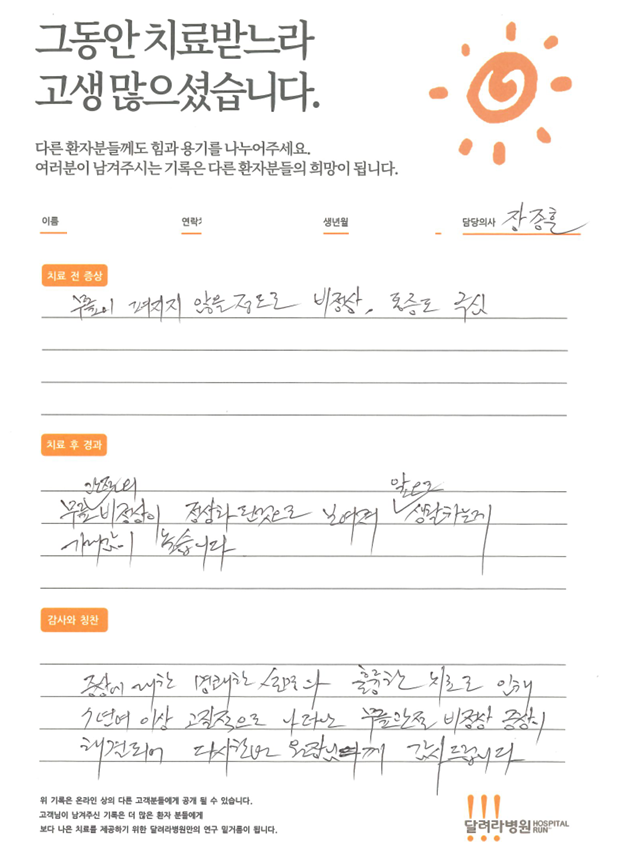 그동안 치료받느라
고생 많으셨습니다.
다른 환자분들께도 힘과 용기를 나누어주세요.
여러분이 남겨주시는 기록은 다른 환자분들의 희망이 됩니다.
이름 연락 생년월 담당의사 장종훈
치료 전 증상
무릎이 펴지지 않을 정도로 비정상, 통증도 극심
치료 후 경과
관절의 앞으로
무릎 비정상이 정상화 된것으로 느여져 생활하는데
기대감이 높습니다
감사와 칭찬
증상에 대한 명쾌한 진료와 훌륭한 치료로 인해
수년여 이상 고질적으로 나타난 무릎관절 비정상 증상이
해결되어 다시한번 원장님께 감사드립니다
위 기록은 온라인 상의 다른 고객분들에게 공개 될 수 있습니다.
고객님이 남겨주신 기록은 더 많은 환자 분들에게
보다 나은 치료를 제공하기 위한 달려라병원만의 연구 밑거름이 됩니다.
달려라병원 HOSPITAL RUN